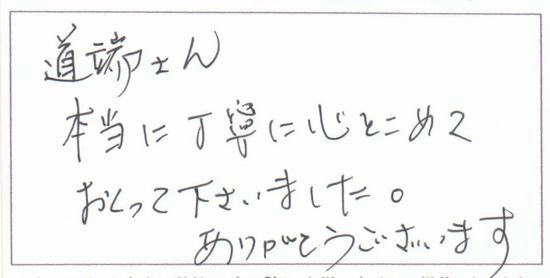 道端さん
本当に丁寧に心をこめて
おくって下さいました。
ありがとうございます